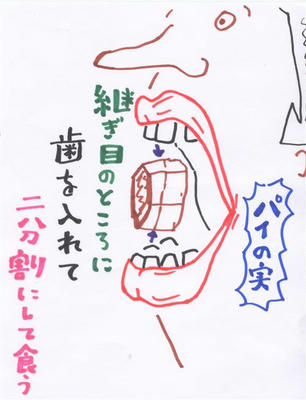 パイの実
継ぎ目のところに
歯を入れて
二分割にして食う